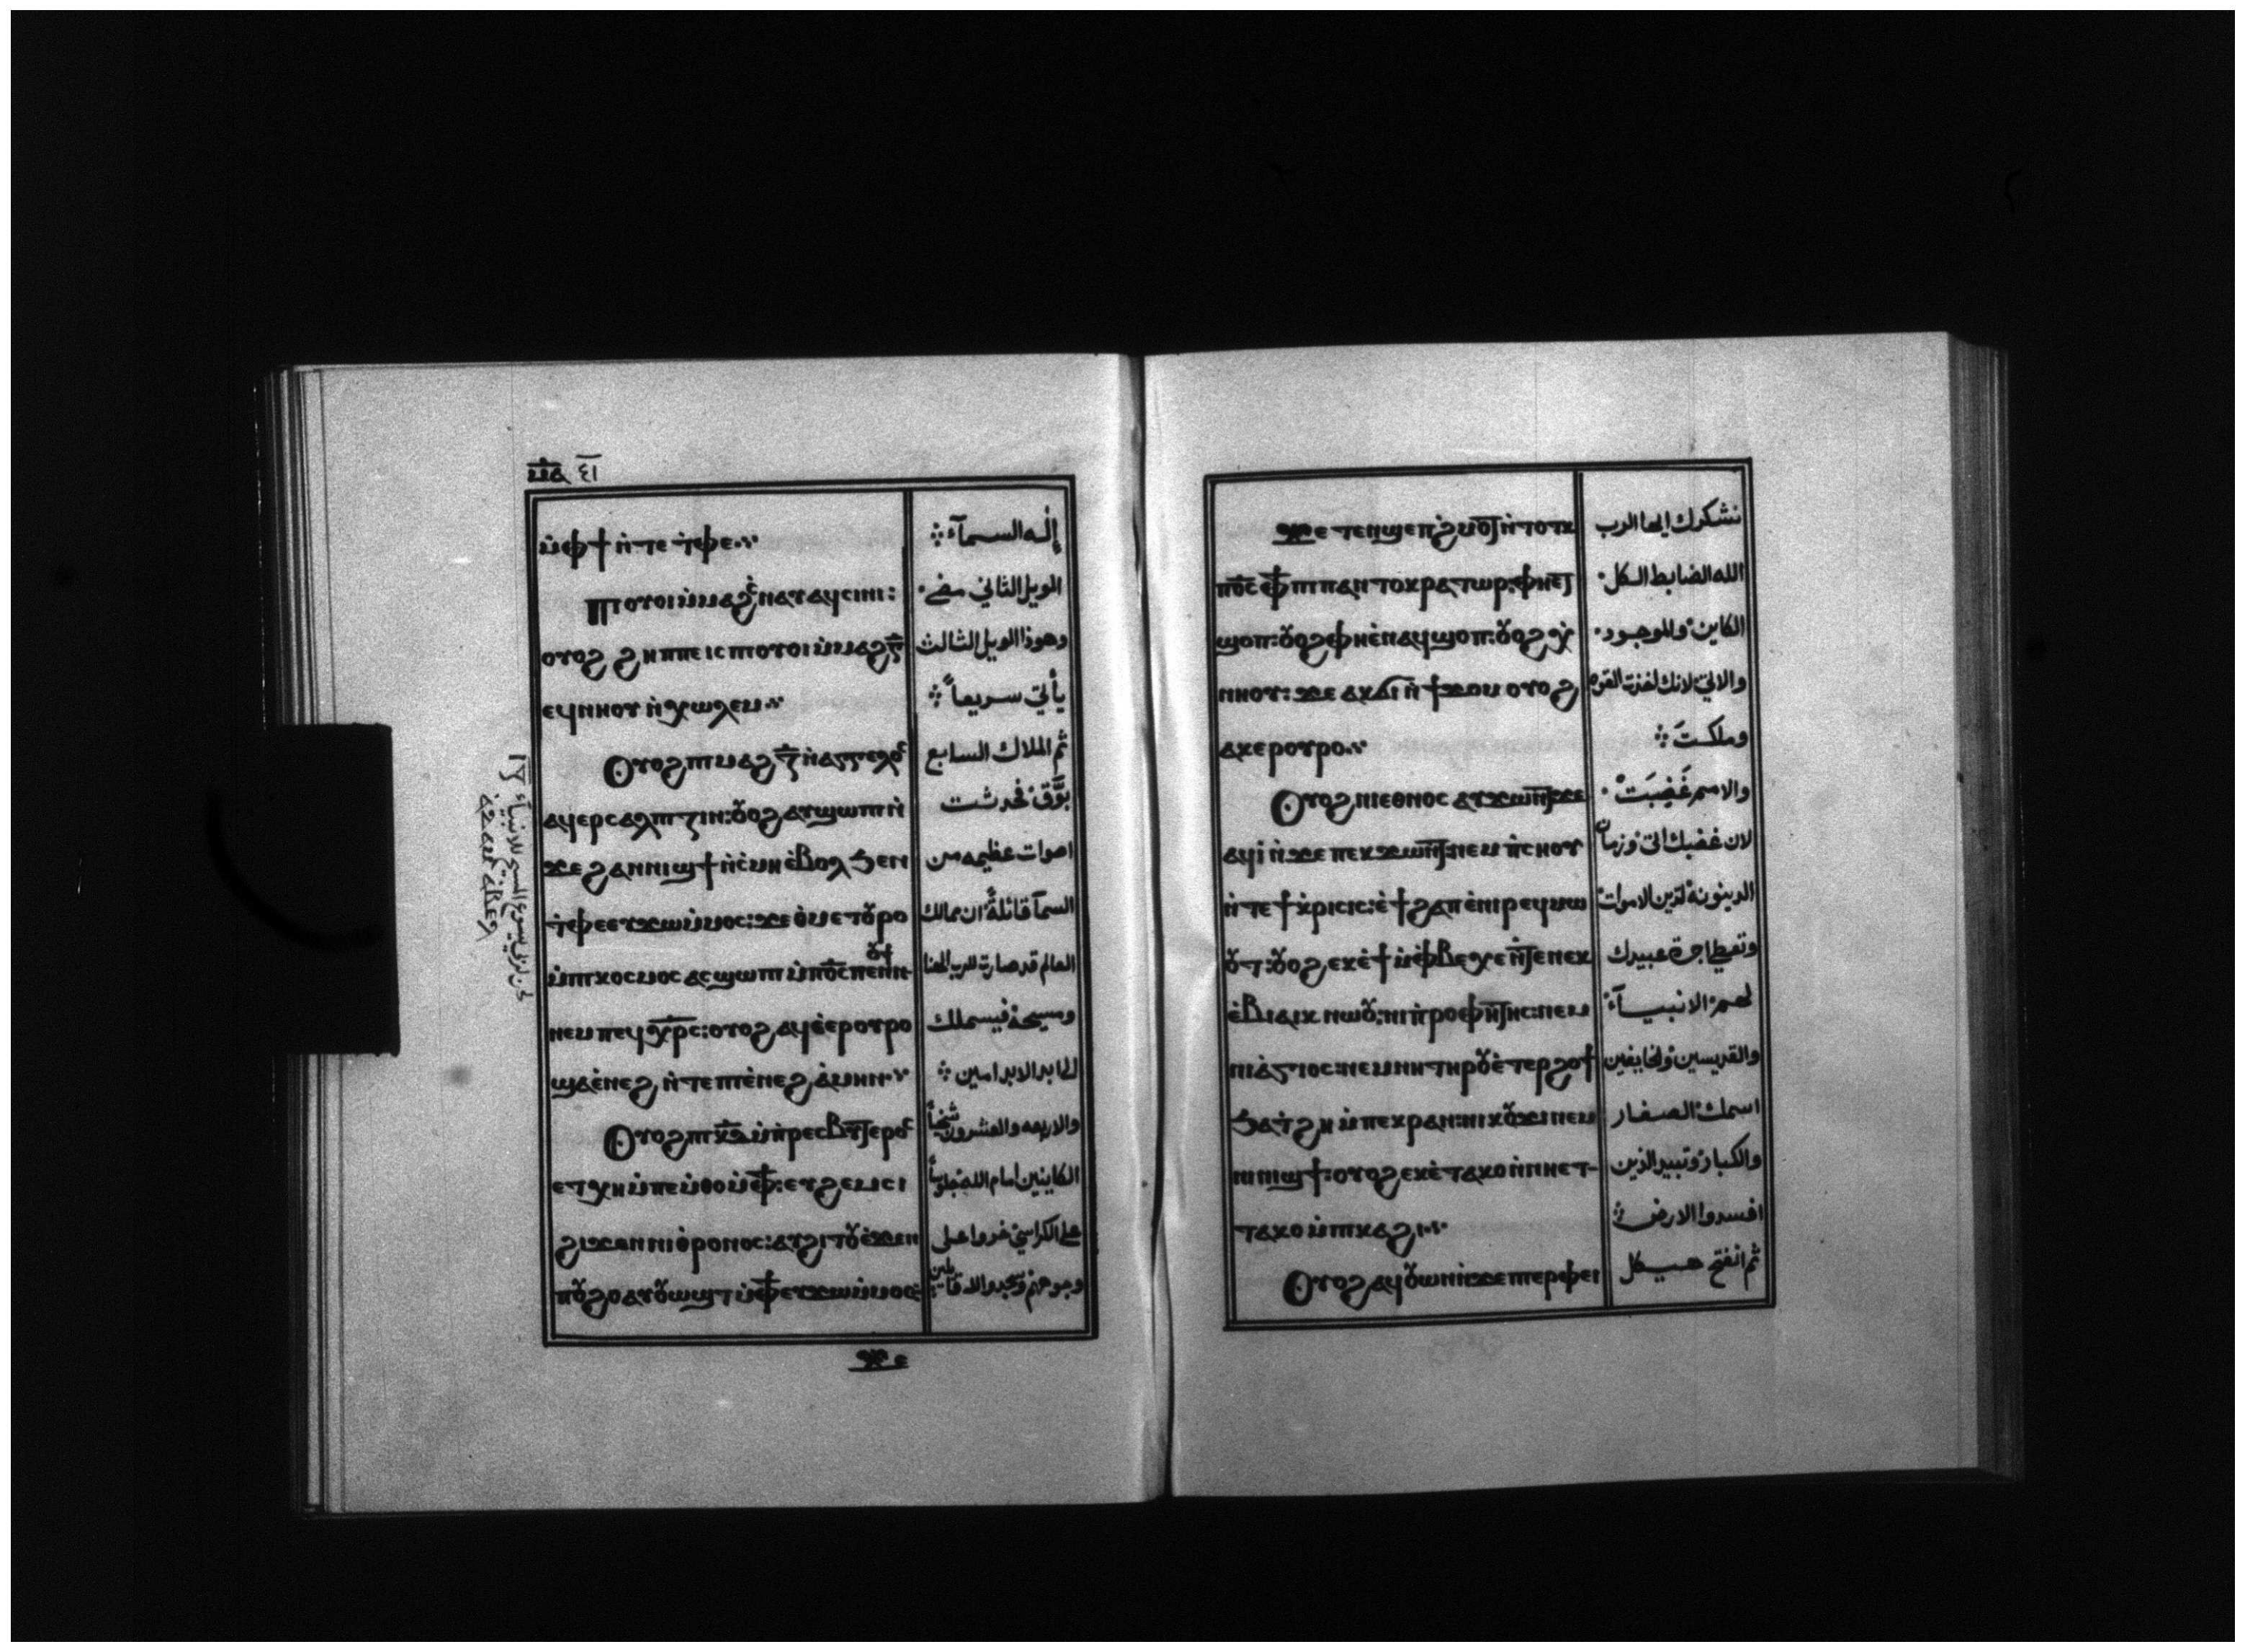 ⲙ̅ⲁ̅ ٤١
ⲙ̀ⲫϯ ⲛ̀ⲧⲉ ⲧ̀ⲫⲉ
ⲡⲓⲟⲩⲟⲓ ⲙ̀ⲙⲁϩⲃ̅ ⲛⲁⲩⲁϥⲥⲓⲛⲓ:
ⲟⲩⲟϩ ϩⲏⲡⲡⲉ ⲓⲥ ⲡⲓⲟⲩⲟⲓ ⲙ̀ⲙⲁϩⲅ̅
ⲉϥⲛⲏⲟⲩ ⲛ̀ⲭⲱⲗⲉⲙ
Ⲟⲩⲟϩ ⲡⲓⲙⲁϩⲍ̅ ⲛ̀ⲁⲅⲅⲉⲗⲟⲥ
ⲁϥⲉⲣⲥⲁⲗⲡⲓⲍⲓⲛ: ⲟⲩⲟϩ ⲁⲩϣⲱⲡⲓ ⲛ̀
ϫⲉ ϩⲁⲛⲛⲓϣϯ ⲛ̀ⲥ̀ⲙⲏ ⲉ̀ⲃⲟⲗ ϧⲉⲛ
ⲧ̀ⲫⲉ ⲉⲩϫⲱ ⲙ̀ⲙⲟⲥ: ϫⲉ ⲑ̀ⲙⲉⲧⲟⲩⲣⲟ
ⲙ̀ⲡⲓⲕⲟⲥⲙⲟⲥ ⲁⲥϣⲱⲡⲓ ⲙ̀ⲡ̅ⲟ̅ⲥ̅ ⲡⲉⲛⲛⲟⲩϯ
ⲛⲉⲙ ⲡⲉϥⲭ̅ⲣ̅ⲥ̅: ⲟⲩⲟϩ ⲁϥⲉ̀ⲉⲣⲟⲩⲣⲟ
ϣⲁ ⲉ̀ⲛⲉϩ ⲛ̀ⲧⲉ ⲡⲓⲉ̀ⲛⲉϩ ⲁ̀ⲙⲏⲛ
Ⲟⲩⲟϩ ⲡⲓⲕ̅ⲇ̅ ⲙ̀ⲡ̀ⲣⲉⲥⲃⲩⲧⲉⲣⲟⲥ
ⲉⲧⲭⲏ ⲙ̀ⲡⲉⲙ̀ⲑⲟ ⲙ̀ⲫϯ: ⲉⲩϩⲉⲙⲥⲓ
ϩⲓϫⲉⲛ ⲛⲓⲑ̀ⲣⲟⲛⲟⲥ: ⲁⲩϩⲓⲧⲟⲩ ⲉ̀ϫⲉⲛ
ⲡⲟⲩϩⲟ ⲁⲩⲟⲩⲱϣⲧ ⲙ̀ⲫϯ ⲉⲩϫⲱ ⲙ̀ⲙⲟⲥ:
ϫⲉ
إله السمآء
الويل الثاني مضي
وهوذا الويل الثالث
يأتي سريعاً
ثم الملاك السابع
بوَّق فحدثت
اصوات عظيمه من
السمآ قائلةً ان ممالك
العالم قد صارت للرب الهنا
ومسيحة فيسملك
الي ابد الابد امين
والاربعه والعشرون شيخاً
الكاينين امام الله جلوساً
علي الكراسي خروا علي
وجوههم وسجدوا لله قائلين
ϫⲉ ⲧⲉⲛϣⲉⲡϩ̀ⲙⲟⲧ ⲛ̀ⲧⲟⲧⲕ
ⲡ̅ⲟ̅ⲥ̅ ⲫϯ ⲡⲓⲡⲁⲛⲧⲟⲕⲣⲁⲧⲱⲣ: ⲫⲏⲉⲧ
ϣⲟⲡ: ⲟⲩⲟϩ ⲫⲏⲉ̀ⲛⲁϥϣⲟⲡ: ⲟⲩⲟϩ ϥ̀
ⲛⲏⲟⲩ: ϫⲉ ⲁⲕϭⲓ ⲛ̀ϯϫⲟⲙ ⲟⲩⲟϩ
ⲁⲕⲉⲣⲟⲩⲣⲟ
Ⲟⲩⲟϩ ⲛⲓⲉⲑⲛⲟⲥ ⲁⲩϫⲱⲛⲧ ϫⲉ
ⲁϥⲓ̀ ⲛ̀ϫⲉ ⲡⲉⲕϫⲱⲛⲧ: ⲛⲉⲙ ⲡ̀ⲥⲏⲟⲩ
ⲛ̀ⲧⲉ ϯⲕ̀ⲣⲓⲥⲓⲥ: ⲉ̀ϯϩⲁⲡ ⲉ̀ⲛⲓⲣⲉϥⲙⲱ
ⲟⲩⲧ: ⲟⲩⲟϩ ⲉⲕⲉ̀ϯ ⲙ̀ⲫ̀ⲃⲉⲭⲉ ⲛ̀ⲛⲉⲕ
ⲉ̀ⲃⲓⲁⲓⲕ ⲛⲱⲟⲩ: ⲛⲓⲡ̀ⲣⲟⲫⲏⲧⲏⲥ: ⲛⲉⲙ
ⲛⲓⲁ̀ⲅⲓⲟⲥ: ⲛⲉⲙ ⲛⲏ ⲧⲏⲣⲟⲩ ⲉ̀ⲧⲉⲣϩⲟϯ
ϧⲁⲧ̀ϩⲏ ⲙ̀ⲡⲉⲕⲣⲁⲛ: ⲛⲓⲕⲟⲩϫⲓ ⲛⲉⲙ
ⲛⲓⲛⲓϣϯ: ⲟⲩⲟϩ ⲉⲕⲉ̀ⲧⲁⲕⲟ ⲛ̀ⲛⲏⲉⲧ
ⲧⲁⲕⲟ ⲙ̀ⲡⲓⲕⲁϩⲓ
Ⲟⲩⲟϩ ⲁϥⲟⲩⲱⲛ ⲛ̀ϫⲉ ⲡⲓⲉⲣⲫⲉⲓ
نشكرك ايها الرب
الله الضابط الكل
الكاين والموجود
والاتي لانك اخذت القوه
وملكتَ
والامم غَضِبَت
لان غضبك اتي وزمان
الدينونة لتدين الاموات
وتعطي اجرة عبيدك
لهم الانبيآء
والقديسين والخايفين
اسمك الصغار
والكبار وتبيد الذين
افسدوا الارض
ثم انفتح هيكل